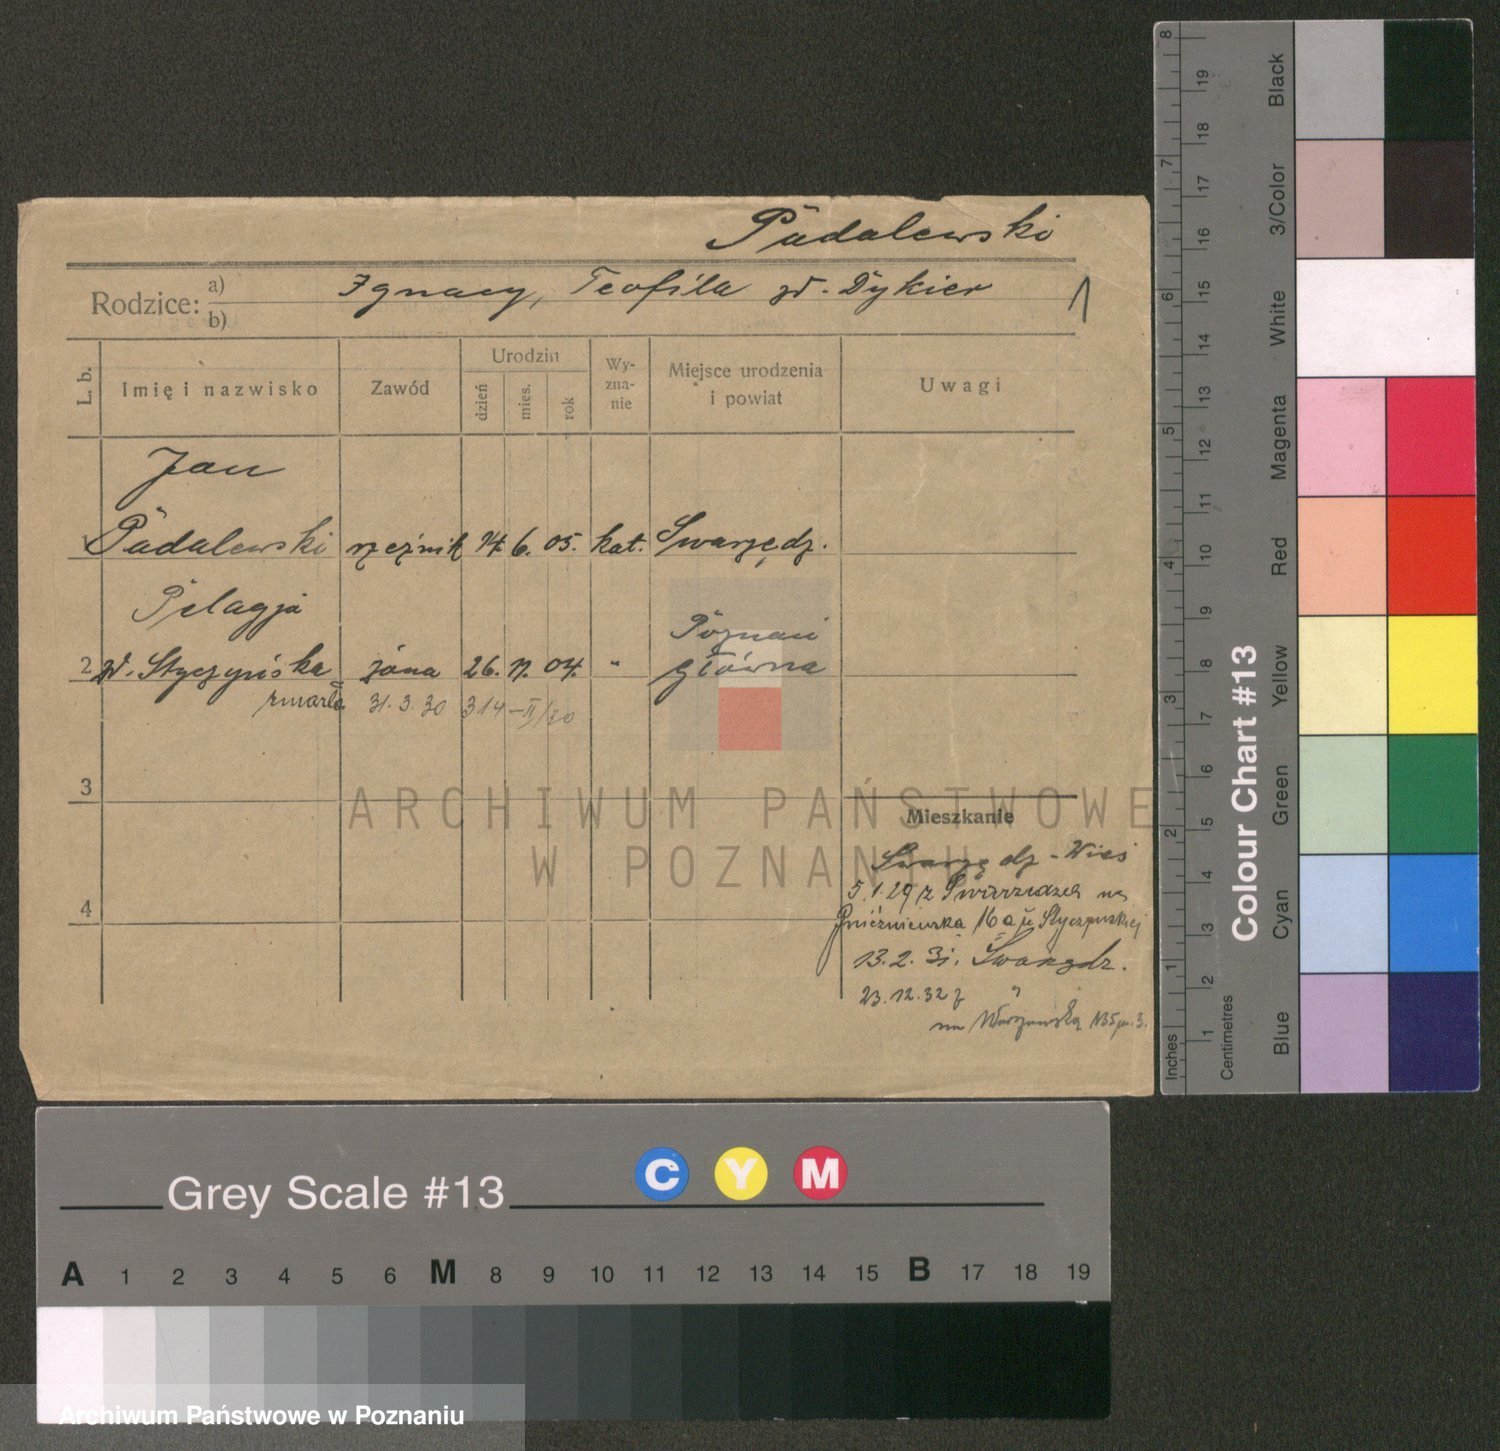 Padalewski
Rodzice: a) b) Ignacy, Teofila zd. Dykier
L. b.
Imię i nazwisko
Zawód
Urodzin
dzień
mies.
rok
Wy-
zna-
nie
Miejsce urodzenia
i powiat
Uwagi
Jan
Padalewski rzeźnik 14. 6. 05. kat. Swarzędz.
Pelagja
Poznań
2 zd. Styczyńska żona 26. 11. 04. " główna
zmarła 31. 3. 30 314-II/30
3
4
Mieszkanie
Swarzędz-Wieś
5.1.29 z Swarzędza na
Gnieźnieńska 16a u Styczyńskiej
13.2.31. Swarzędz.
23.12.32 z "
na Warszawska
ARCHIWUM PAŃSTWOWE
W POZNANIU
Colour Chart #13
Black
3/Color
White
Magenta
Red
Yellow
Green
Cyan
Blue
Inches
1 2 3 4 5 6 7 8
Centimetres
1 2 3 4 5 6 7 8 9 10 11 12 13 14 15 16 17 18 19
Grey Scale #13
C Y M
A 1 2 3 4 5 6 M 8 9 10 11 12 13 14 15 B 17 18 19
Archiwum Państwowe w Poznaniu